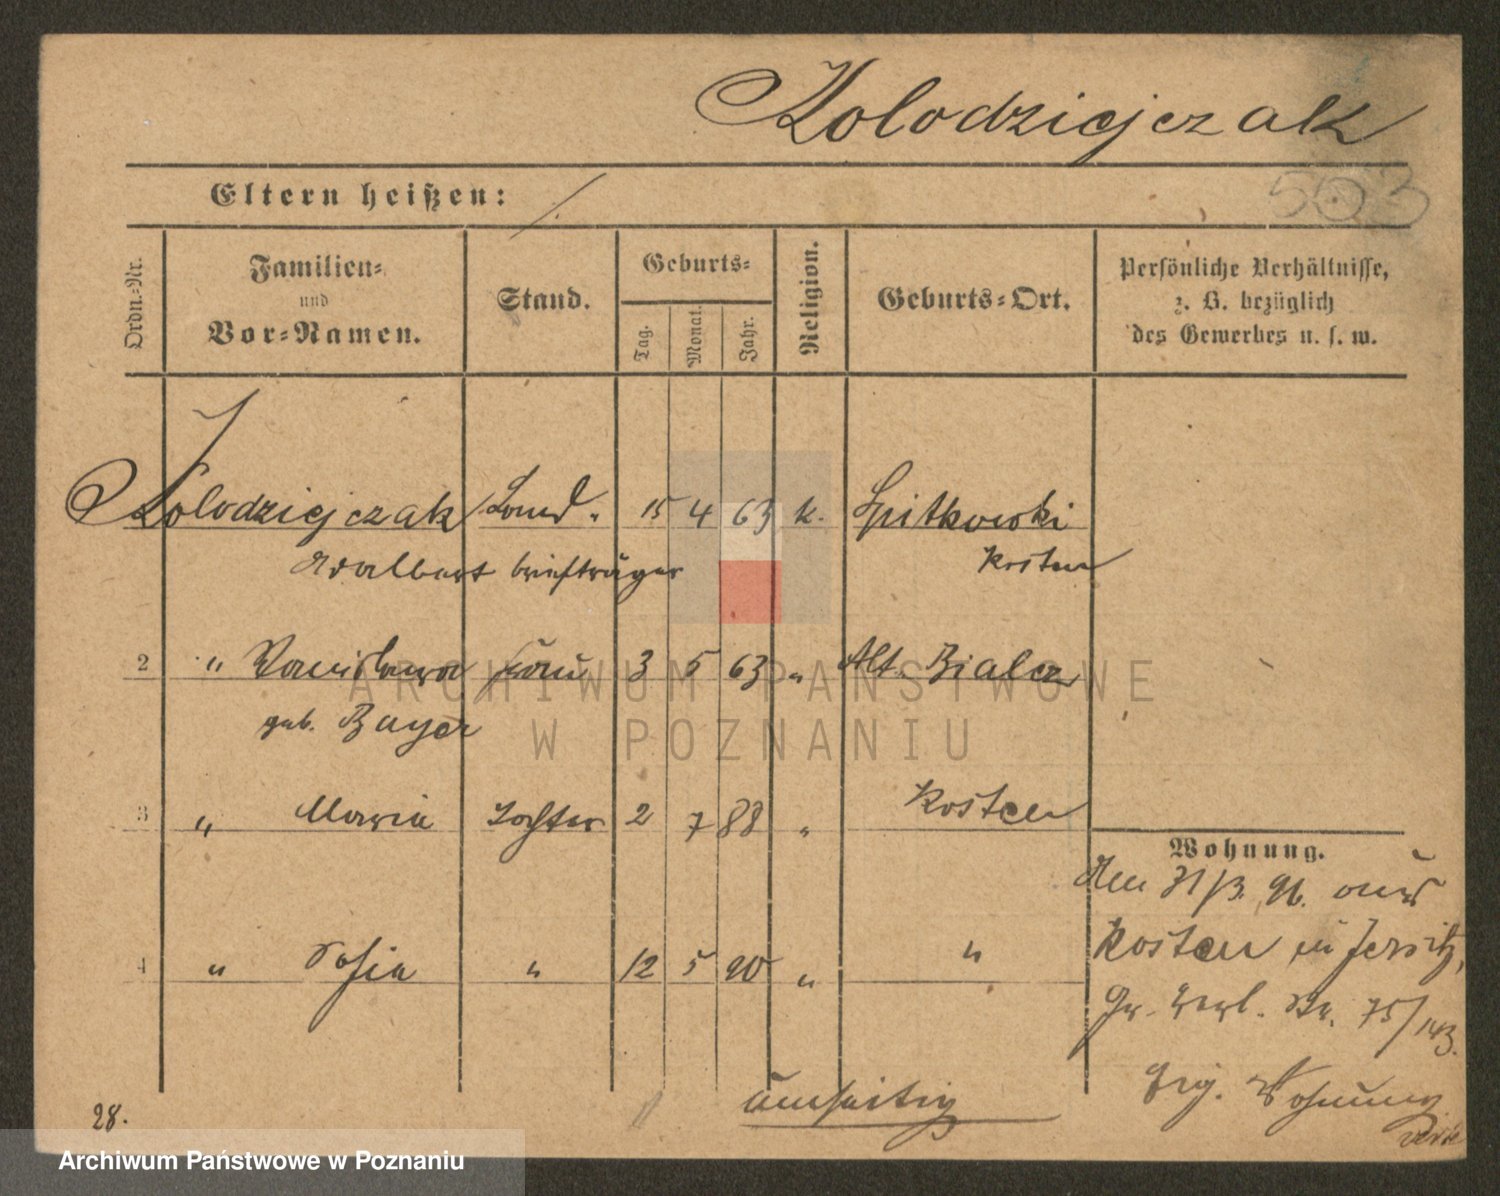 Kolodziejczak
Eltern heißen: /.
503
Ordn.-Nr.
Familien-
und
Vor-Namen.
Stand.
Geburts-
Tag.
Monat.
Jahr.
Religion.
Geburts-Ort.
Persönliche Verhältnisse,
z. B. bezüglich
des Gewerbes u. s. w.
Kolodziejczak Land- 15 4 63 k. Spitkowski
Adalbert briefträger Kosten
2 " Stanislawa Frau 3 5 63 " Alt Bialcz
geb. Bayer
3 " Maria Tochter 2 7 88 " Kosten
Wohnung.
Den 31/3. 96. aus
4 " Sofia " 12 5 90 " "
Kosten in Jersitz,
Gr. Berl. Str. 75/143.
umseitig
Wohnung
28.
ARCHIWUM PAŃSTWOWE
W POZNANIU
Archiwum Państwowe w Poznaniu